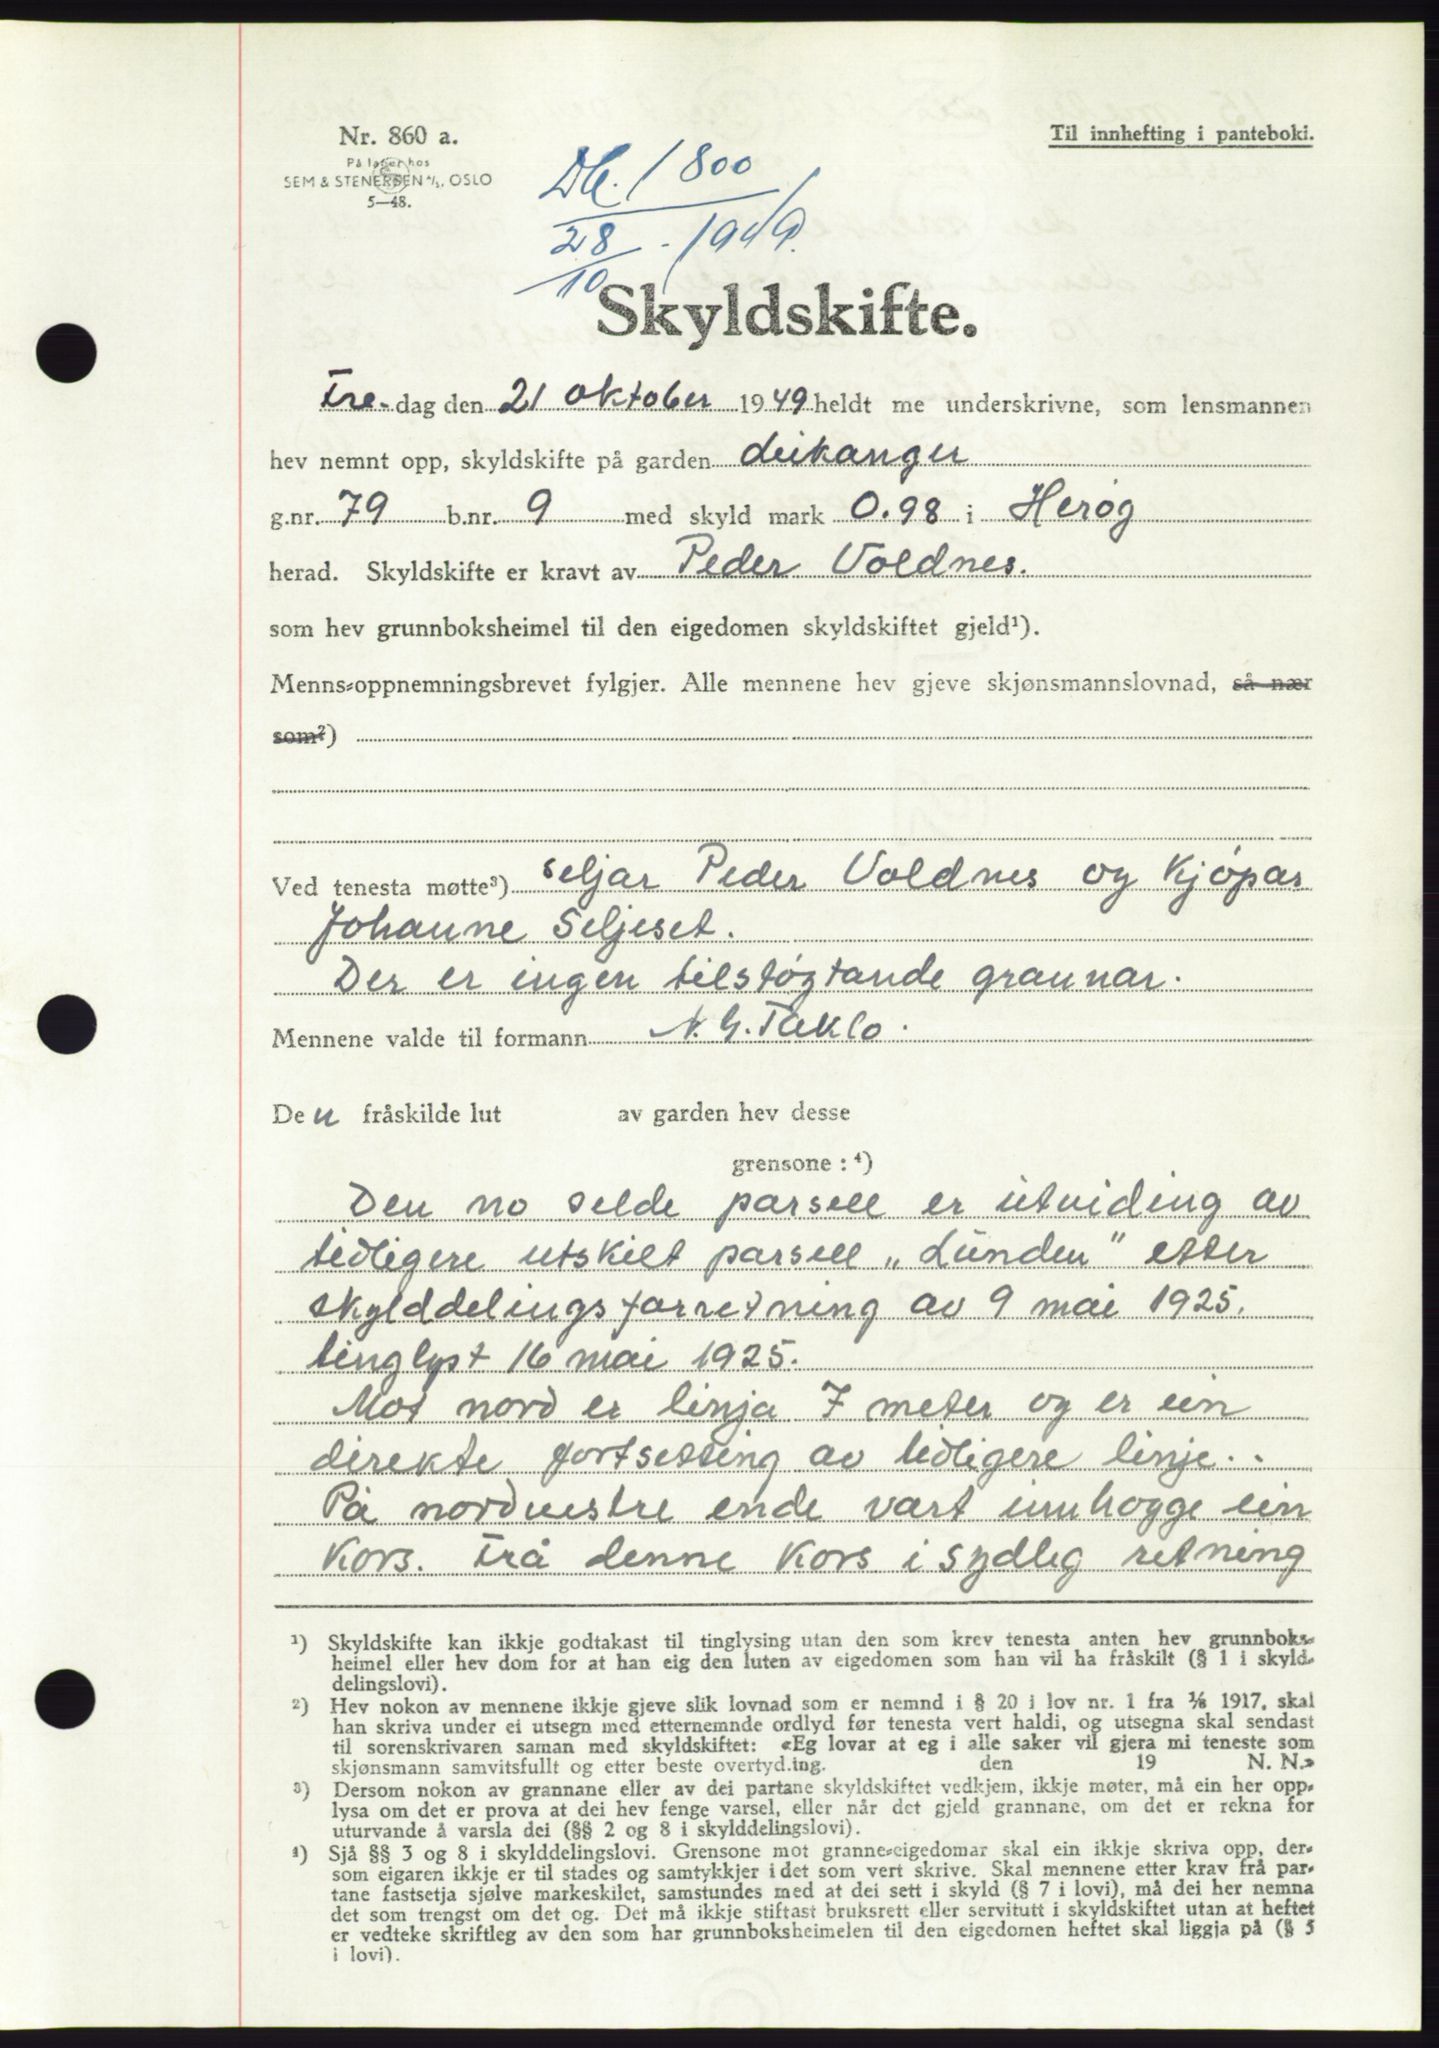 Nr. 860 a.
På lager hos
SEM & STENERSEN A/S, OSLO
5—48.
Til innhefting i panteboki.
Db. / 800
28/10 - 1949.
Skyldskifte.
Fre-dag den 21 oktober 1949 heldt me underskrivne, som lensmannen
hev nemnt opp, skyldskifte på garden Leikanger
g.nr. 79 b.nr. 9 med skyld mark 0.98 i Herøy
herad. Skyldskifte er kravt av Peder Voldnes.
som hev grunnboksheimel til den eigedomen skyldskiftet gjeld¹).
Menns-oppnemningsbrevet fylgjer. Alle mennene hev gjeve skjønsmannslovnad, så nær
som²)
Ved tenesta møtte³) seljar Peder Voldnes og kjøpar
Johanne Seljeset.
Der er ingen tilstøytande grannar.
Mennene valde til formann N. G. Taklo.
Den fråskilde lut av garden hev desse
grensone : ⁴)
Den no selde parsell er utviding av
tidligere utskilt parsell „Lunden" etter
skylddelingsforretning av 9 mai 1925.
tinglyst 16 mai 1925.
Mot nord er linja 7 meter og er ein
direkte fortsetting av tidligere linje..
På nordvestre ende vart innhogge ein
kors. Frå denne kors i sydleg retning
¹) Skyldskifte kan ikkje godtakast til tinglysing utan den som krev tenesta anten hev grunnboks-
heimel eller hev dom for at han eig den luten av eigedomen som han vil ha fråskilt (§ 1 i skyld-
delingslovi).
²) Hev nokon av mennene ikkje gjeve slik lovnad som er nemnd i § 20 i lov nr. 1 fra 1/6 1917, skal
han skriva under ei utsegn med etternemnde ordlyd før tenesta vert haldi, og utsegna skal sendast
til sorenskrivaren saman med skyldskiftet: «Eg lovar at eg i alle saker vil gjera mi teneste som
skjønsmann samvitsfullt og etter beste overtyding. den 19 N. N.»
³) Dersom nokon av grannane eller av dei partane skyldskiftet vedkjem, ikkje møter, må ein her opp-
lysa om det er prova at dei hev fenge varsel, eller når det gjeld grannane, om det er rekna for
uturvande å varsla dei (§§ 2 og 8 i skylddelingslovi).
⁴) Sjå §§ 3 og 8 i skylddelingslovi. Grensone mot granne-eigedomar skal ein ikkje skriva opp, der-
som eigaren ikkje er til stades og samtykkjer i det som vert skrive. Skal mennene etter krav frå par-
tane fastsetja sjølve markeskilet, samstundes med at dei sett i skyld (§ 7 i lovi), må dei her nemna
det som trengst om det og. Det må ikkje stiftast bruksrett eller servitutt i skyldskiftet utan at heftet
er vedteke skriftleg av den som har grunnboksheimelen til den eigedomen heftet skal liggja på (§ 5
i lovi).